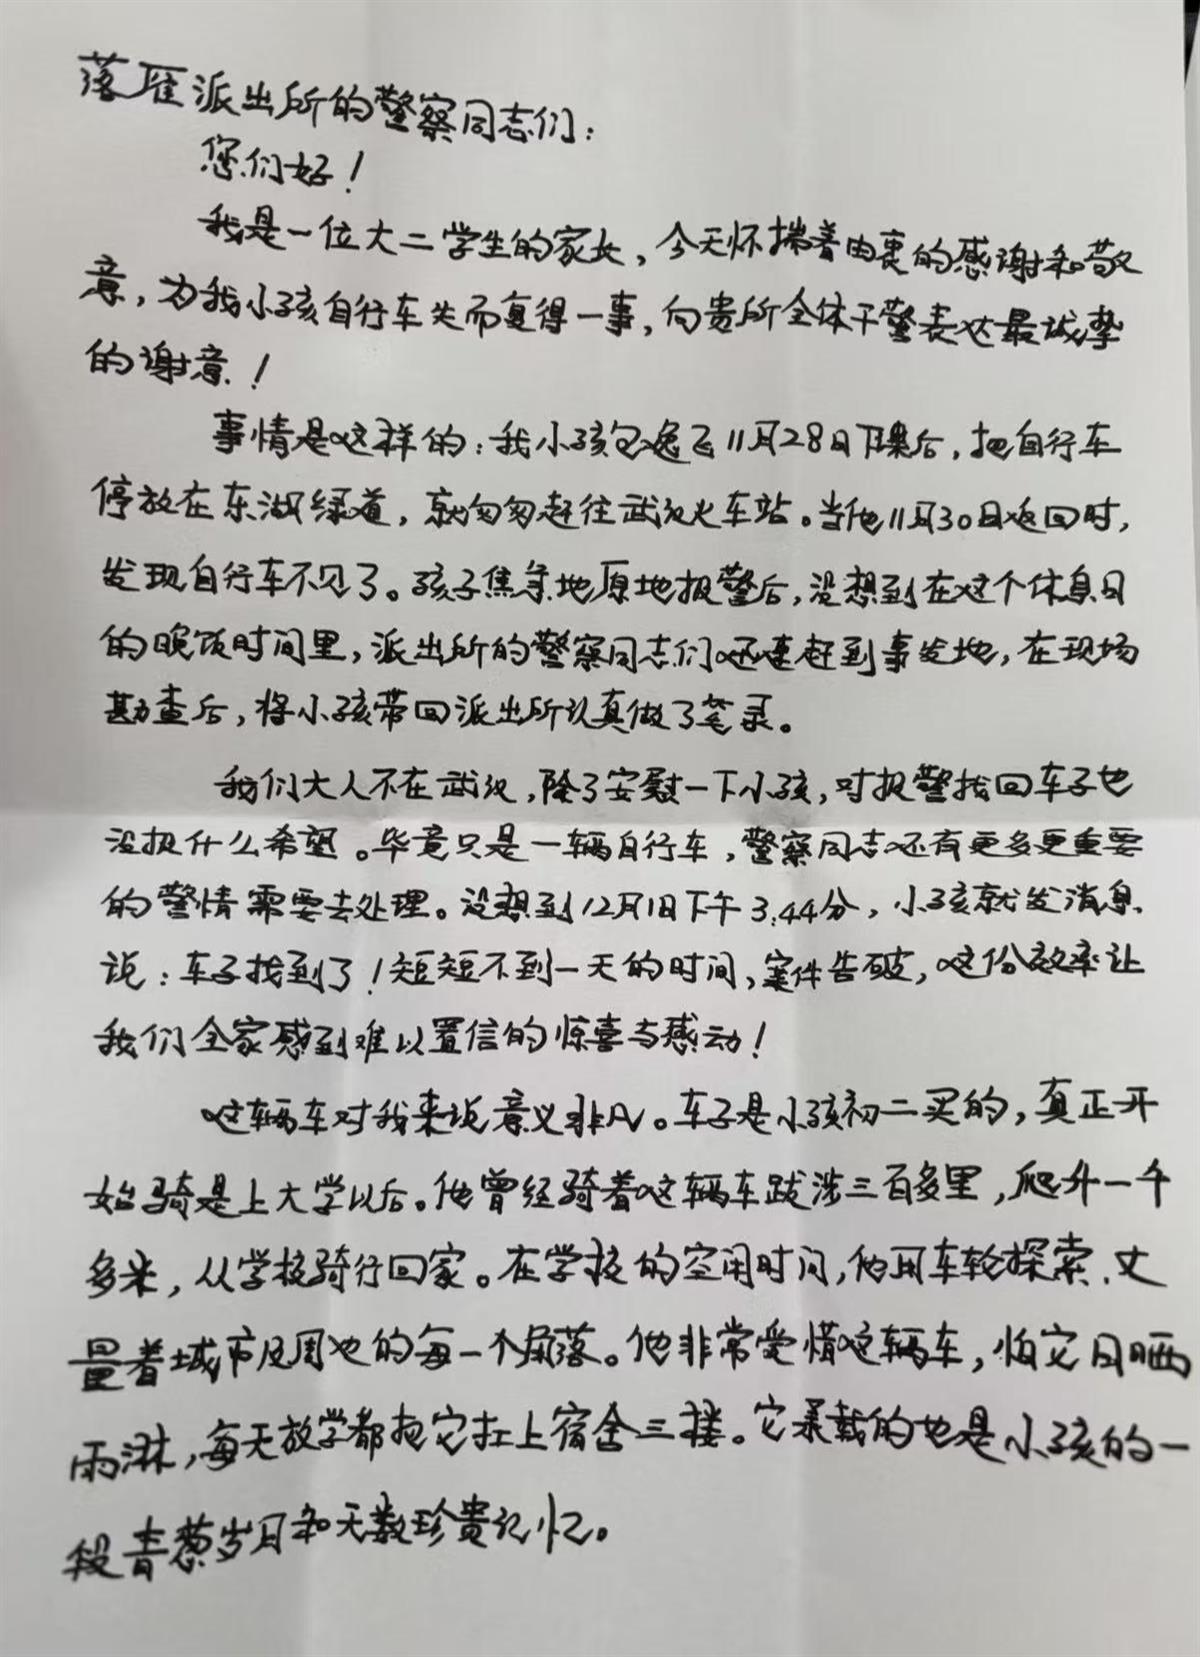 落雁派出所的警察同志们：
您们好！
我是一位大二学生的家长，今天怀揣着由衷的感谢和敬
意，为我小孩自行车失而复得一事，向贵所全体干警表达最诚挚
的谢意！
事情是这样的：我小孩包逸飞11月28日下课后，把自行车
停放在东湖绿道，就匆匆赶往武汉火车站。当他11月30日返回时，
发现自行车不见了。孩子焦急地原地报警后，没想到在这个休息日
的晚饭时间里，派出所的警察同志们迅速赶到事发地，在现场
勘查后，将小孩带回派出所认真做了笔录。
我们大人不在武汉，除了安慰一下小孩，对报警找回车子也
没报什么希望。毕竟只是一辆自行车，警察同志还有更多更重要
的警情需要去处理。没想到12月1日下午3:44分，小孩就发消息
说：车子找到了！短短不到一天的时间，案件告破，这份效率让
我们全家感到难以置信的惊喜与感动！
这辆车对我来说意义非凡。车子是小孩初二买的，真正开
始骑是上大学以后。他曾经骑着这辆车跋涉三百多里，爬升一千
多米，从学校骑行回家。在学校的空闲时间，他用车轮探索、丈
量着城市及周边的每一个角落。他非常爱惜这辆车，怕它日晒
雨淋，每天放学都把它扛上宿舍三楼。它承载的也是小孩的一
段青葱岁月和无数珍贵记忆。